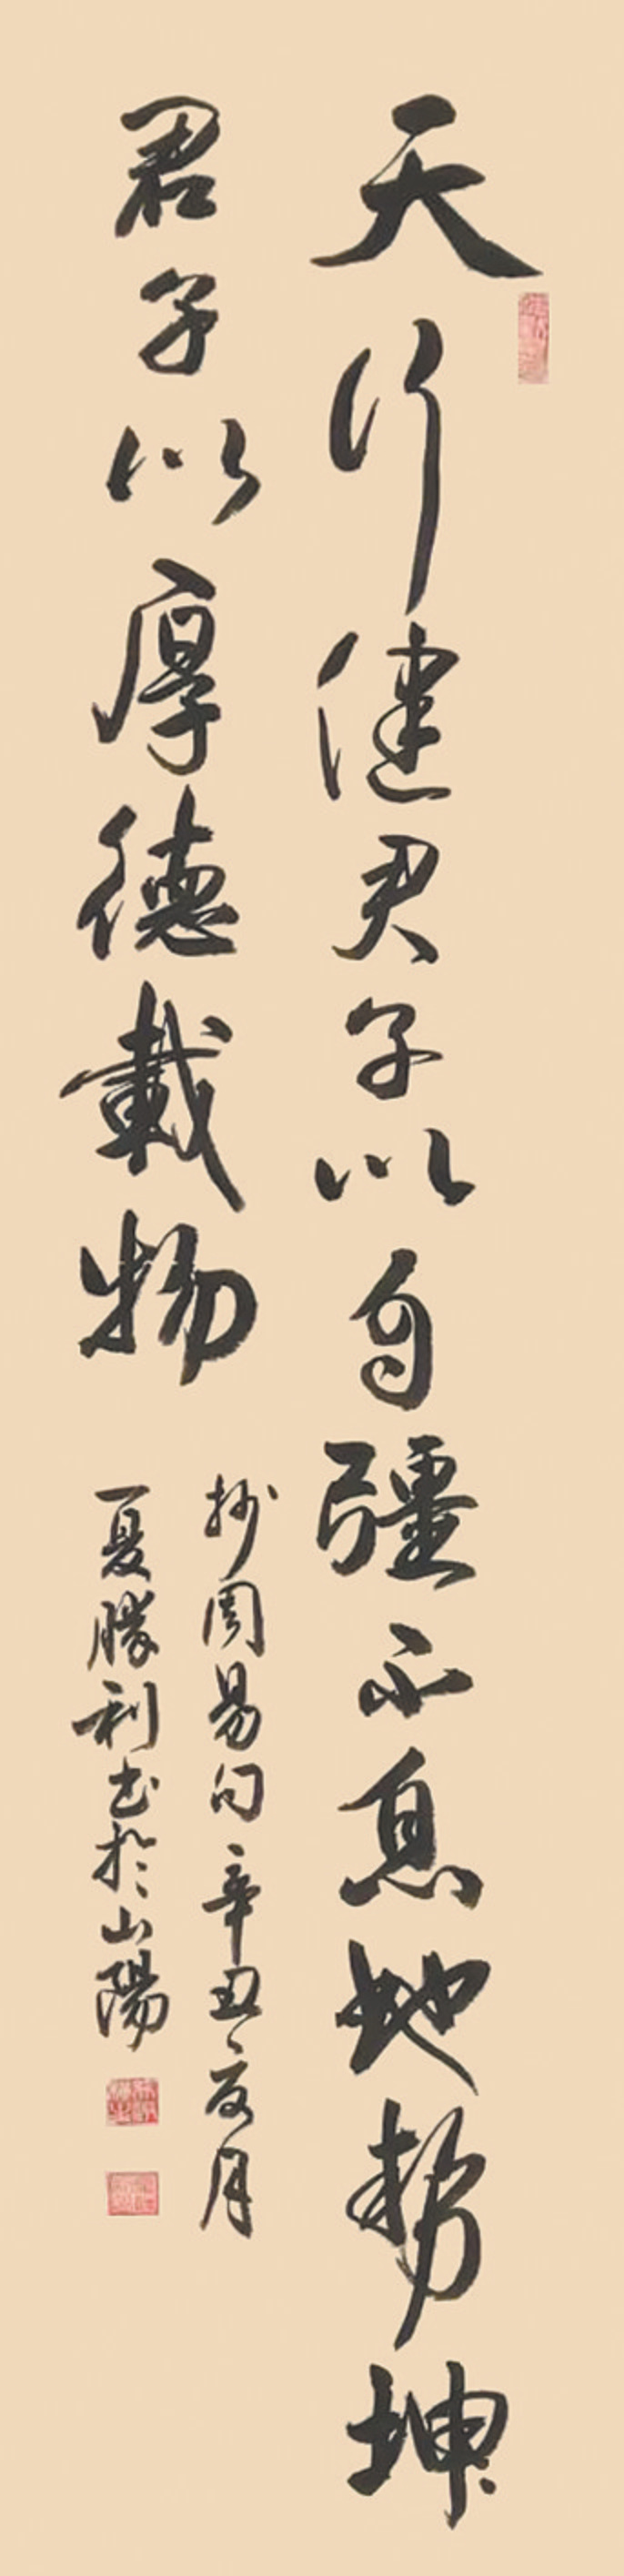 天行健君子以自彊不息地勢坤
君子以厚德載物
抄周易句辛丑夏月
夏勝利書於山陽